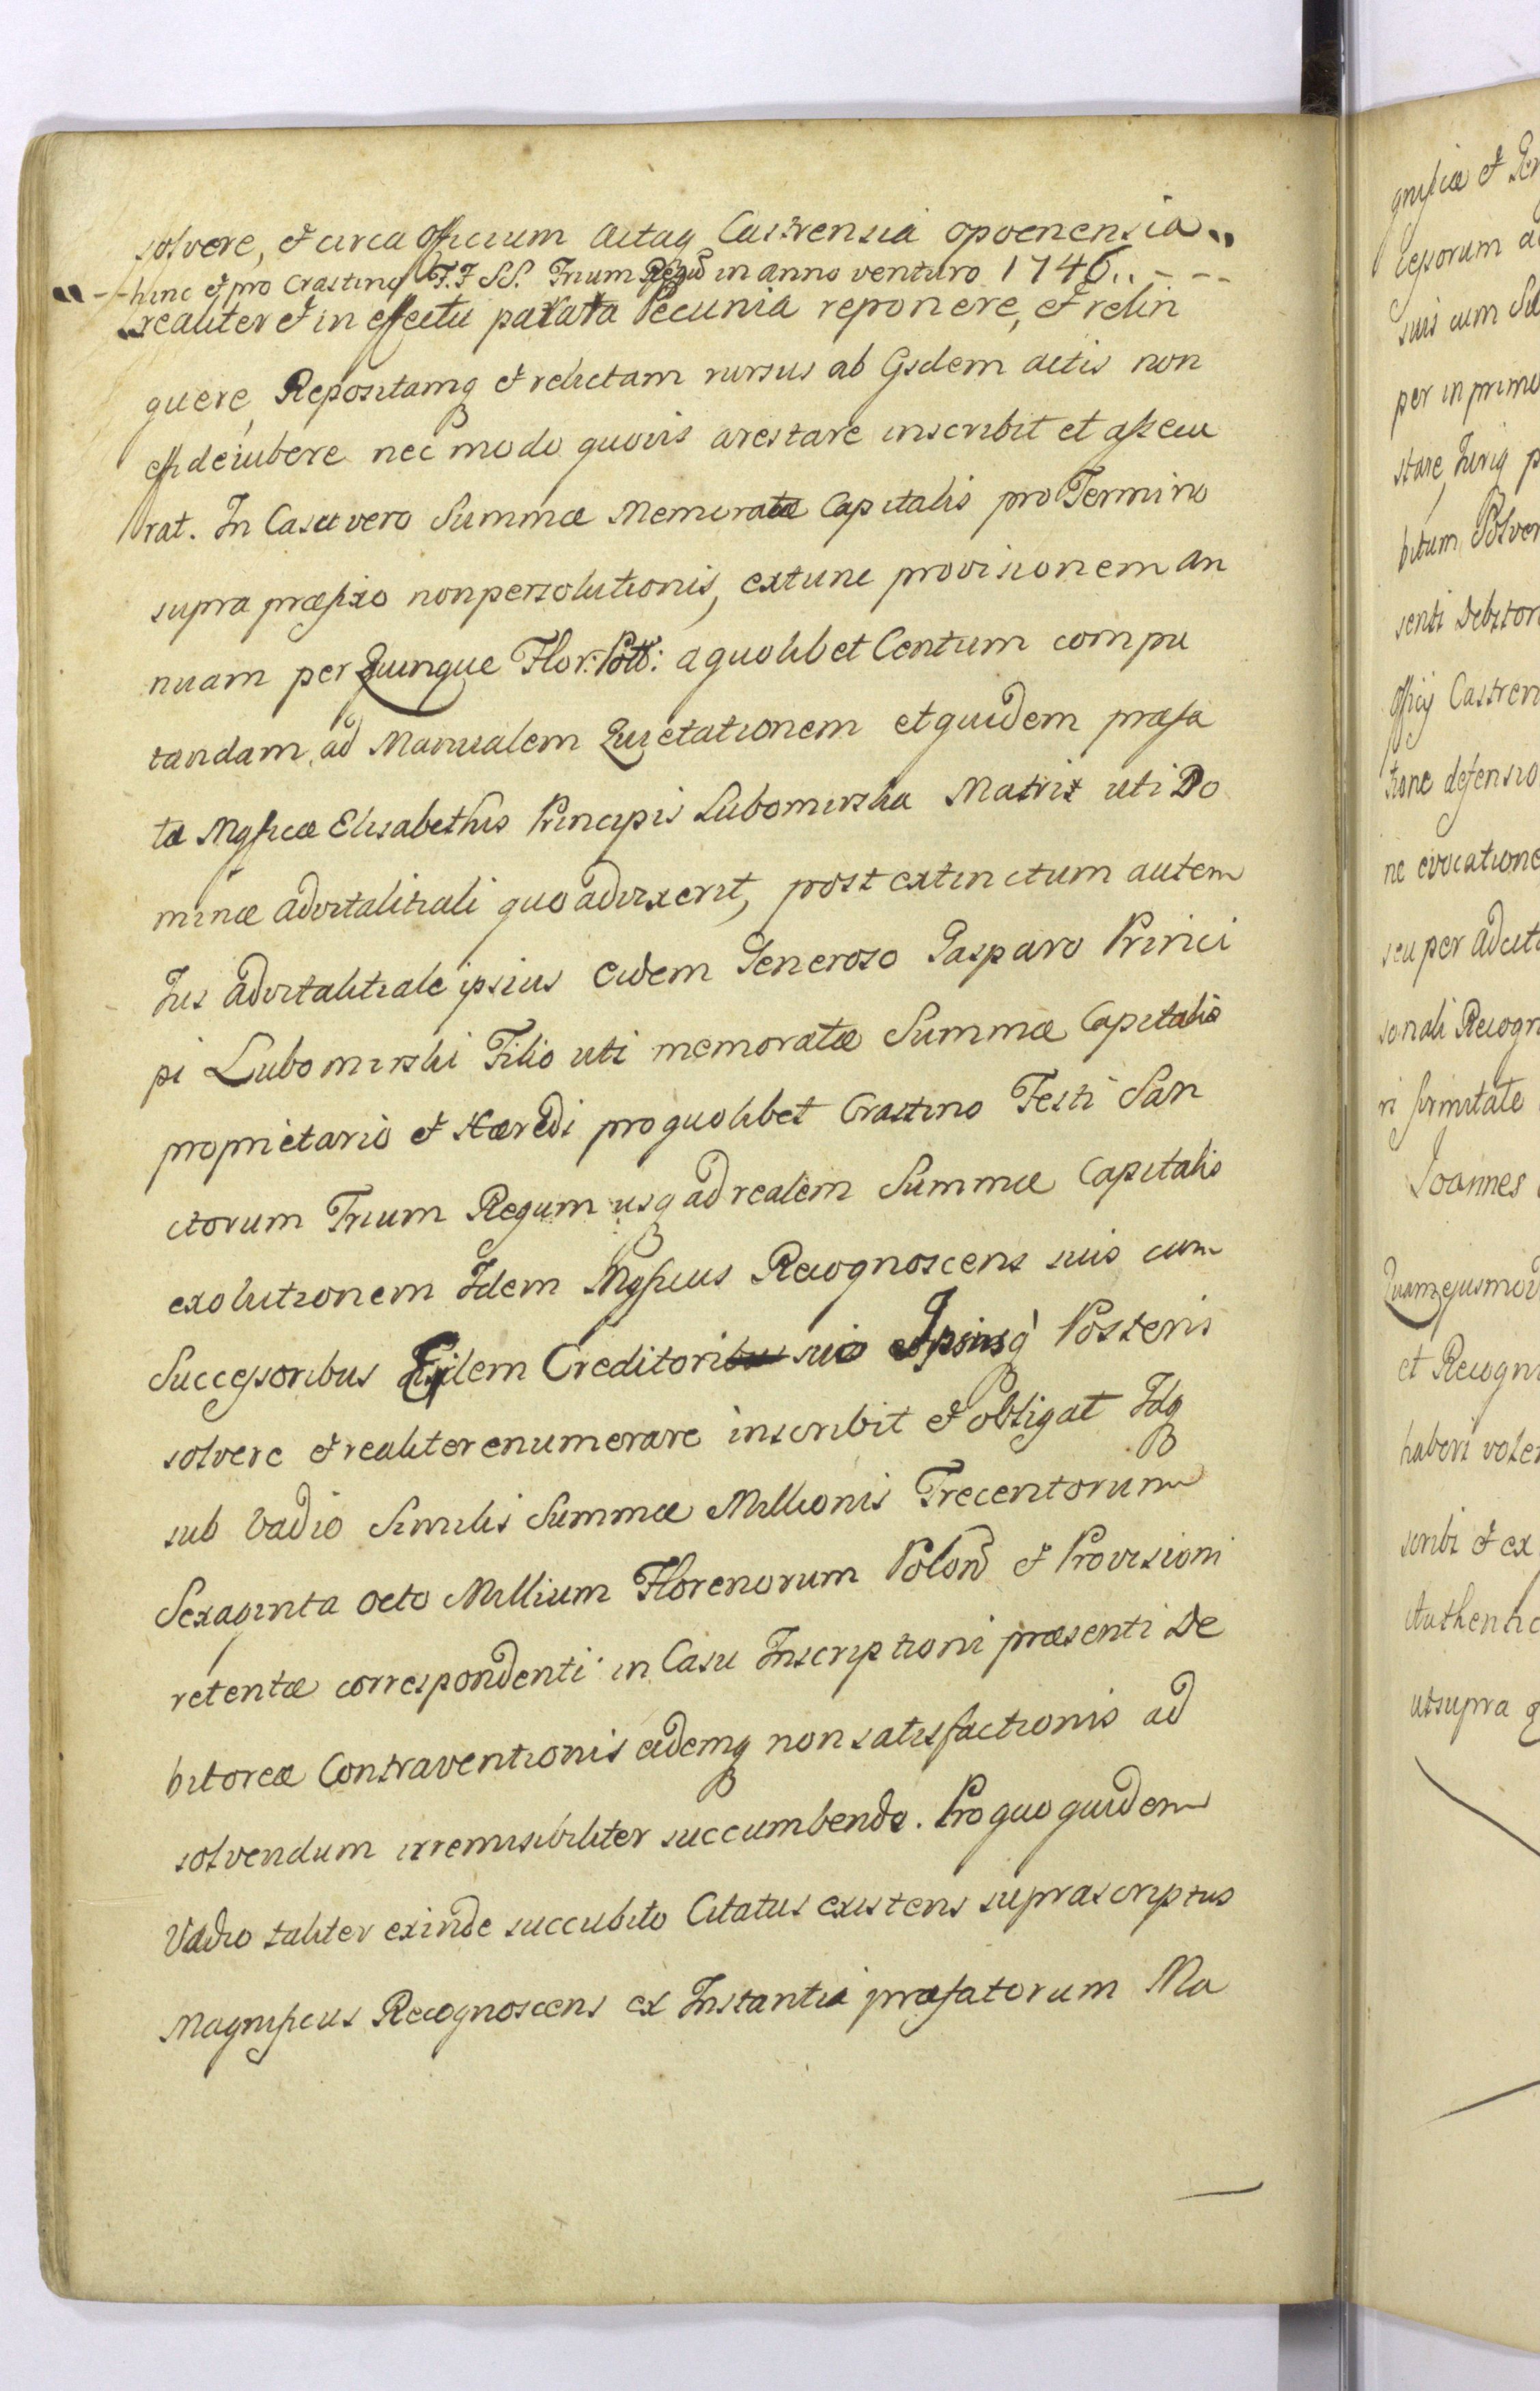 solvere, et circa Officium Actaq Castrensia opocnensia „
„ - - hinc et pro Crastino F. F SS. Trium Regũ in anno venturo 1746.. - - -
„ realiter et in effectu parata Pecunia reponere, et relin
quere, Repositamq et relictam rursus ab Gsdem actis non
effideiubere nec modo quovis arestare inscribit et assecu
rat. In Casu vero Summæ Memoratæ Capitalis pro Termino
supra præfixo nonpersolutionis, extunc provisionem an
nuam per Quinque Flor: Poll: a quolibet Centum compu
tandam, ad Manualem Quietationem et quidem præfa
tæ Mgficæ Elisabethis Principis Lubomirska Matris uti Do
minæ advitalitiali quo advixerit, post extinctum autem
Jus advitalitiale ipsius Eidem Generoso Gasparo Princi
pi Lubomirski Filio uti memoratæ Summæ Capitalis
proprietario et Hæredi pro quolibet Crastino Festi San
ctorum Trium Regum usq ad realem Summæ Capitalis
exolutionem Idem Mgficus Recognoscens suis cum
Successoribus Eidem Creditori suo Ipsiusq Posteris
solvere et realiter enumerare inscribit et obligat Idq
sub Vadio Similis Summæ Millionis Trecentorum
Sexaginta Octo Millium Florenorum Polon̄ et Provisioni
retentæ correspondenti in Casu Inscriptioni præsenti De
bitoreæ Contraventionis eidemq non satisfactionis ad
solvendum irremisibiliter succumbendo. Pro quo quidem
Vadio taliter exinde succubito Citatus existens suprascriptus
Magnificus Recognoscens ex Instantia præfatorum Ma
gnificæ et
cessorum
suis cum
per inprimo
stare, Jurig
bitum Solver
senti Debitor
Officij Castren
tione defensio
ne evocatione
seu per adcit
sonali Recogn
ri firmitate
Joannes
Quam ejusmod
et Recogn
haberi voler
scribi et ex
Authentic
utsupra